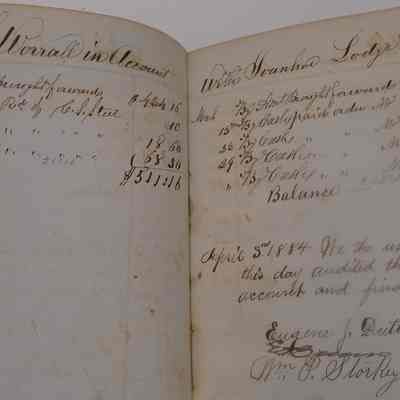 Worrall in Account
brought forward
Rec by C. S. Steel
10
18 60
68 36
$511.16
With Ivanhoe Lodge
Mch By Amt brought forwards
15 By Cash paid order No
26 By Cash " " No
29 By Cash " " No
" By Cash " " No
Balance
April 3rd 1884 We the un
this day audited th
account and find
Eugene J.
Wm P. Storkey